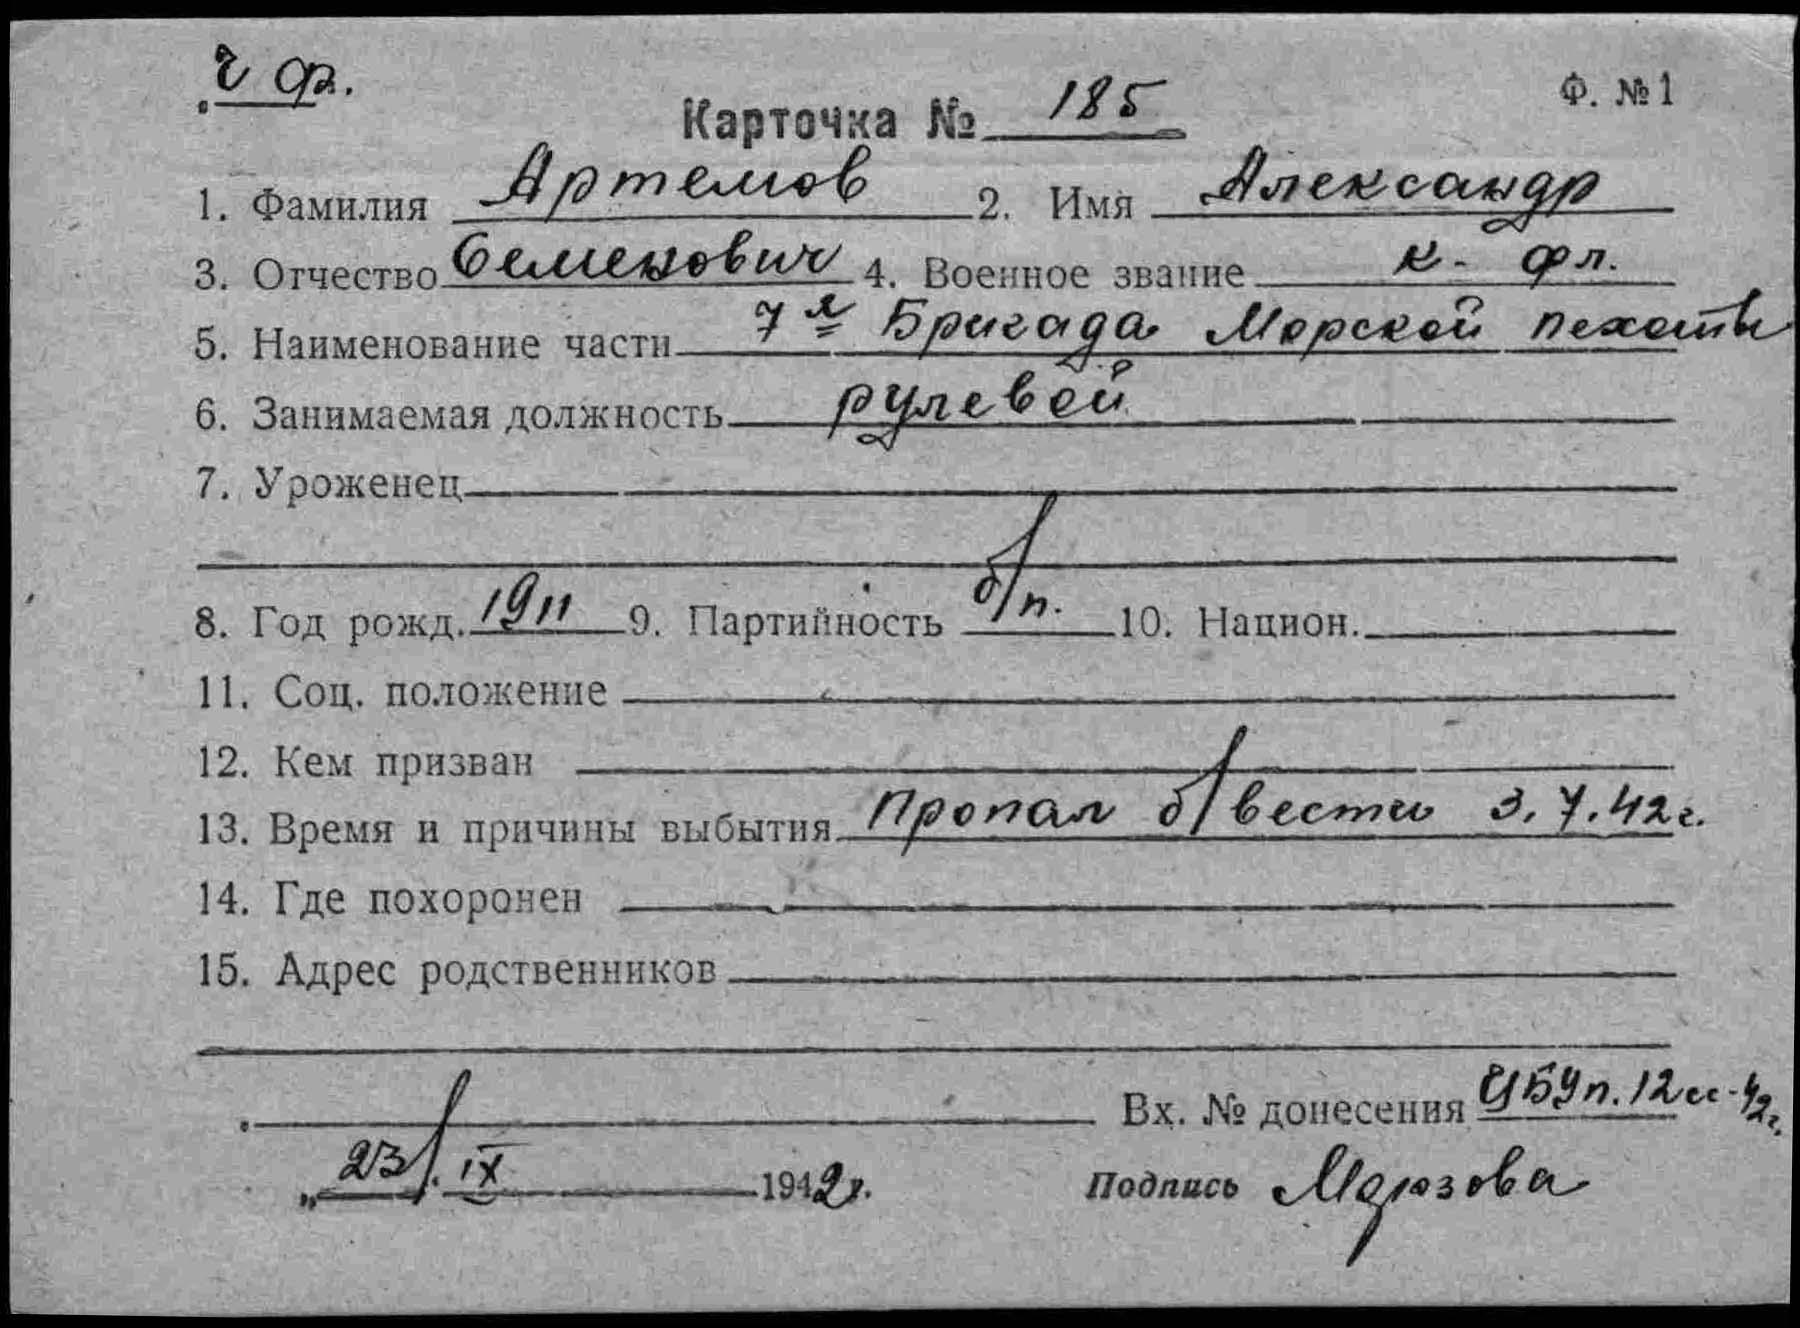 ч ф.
Ф. № 1
Карточка № 185
1. Фамилия Артемов 2. Имя Александр
3. Отчество Семенович 4. Военное звание к-фл.
5. Наименование части 7я Бригада Морской пехоты
6. Занимаемая должность рулевой
7. Уроженец
8. Год рожд. 1911 9. Партийность б/п. 10. Национ.
11. Соц. положение
12. Кем призван
13. Время и причины выбытия Пропал б/вести 3.7.42г.
14. Где похоронен
15. Адрес родственников
Вх. № донесения ЦБУп. 12сс-42г.
„23/. IX 1942г.
Подпись Морозова